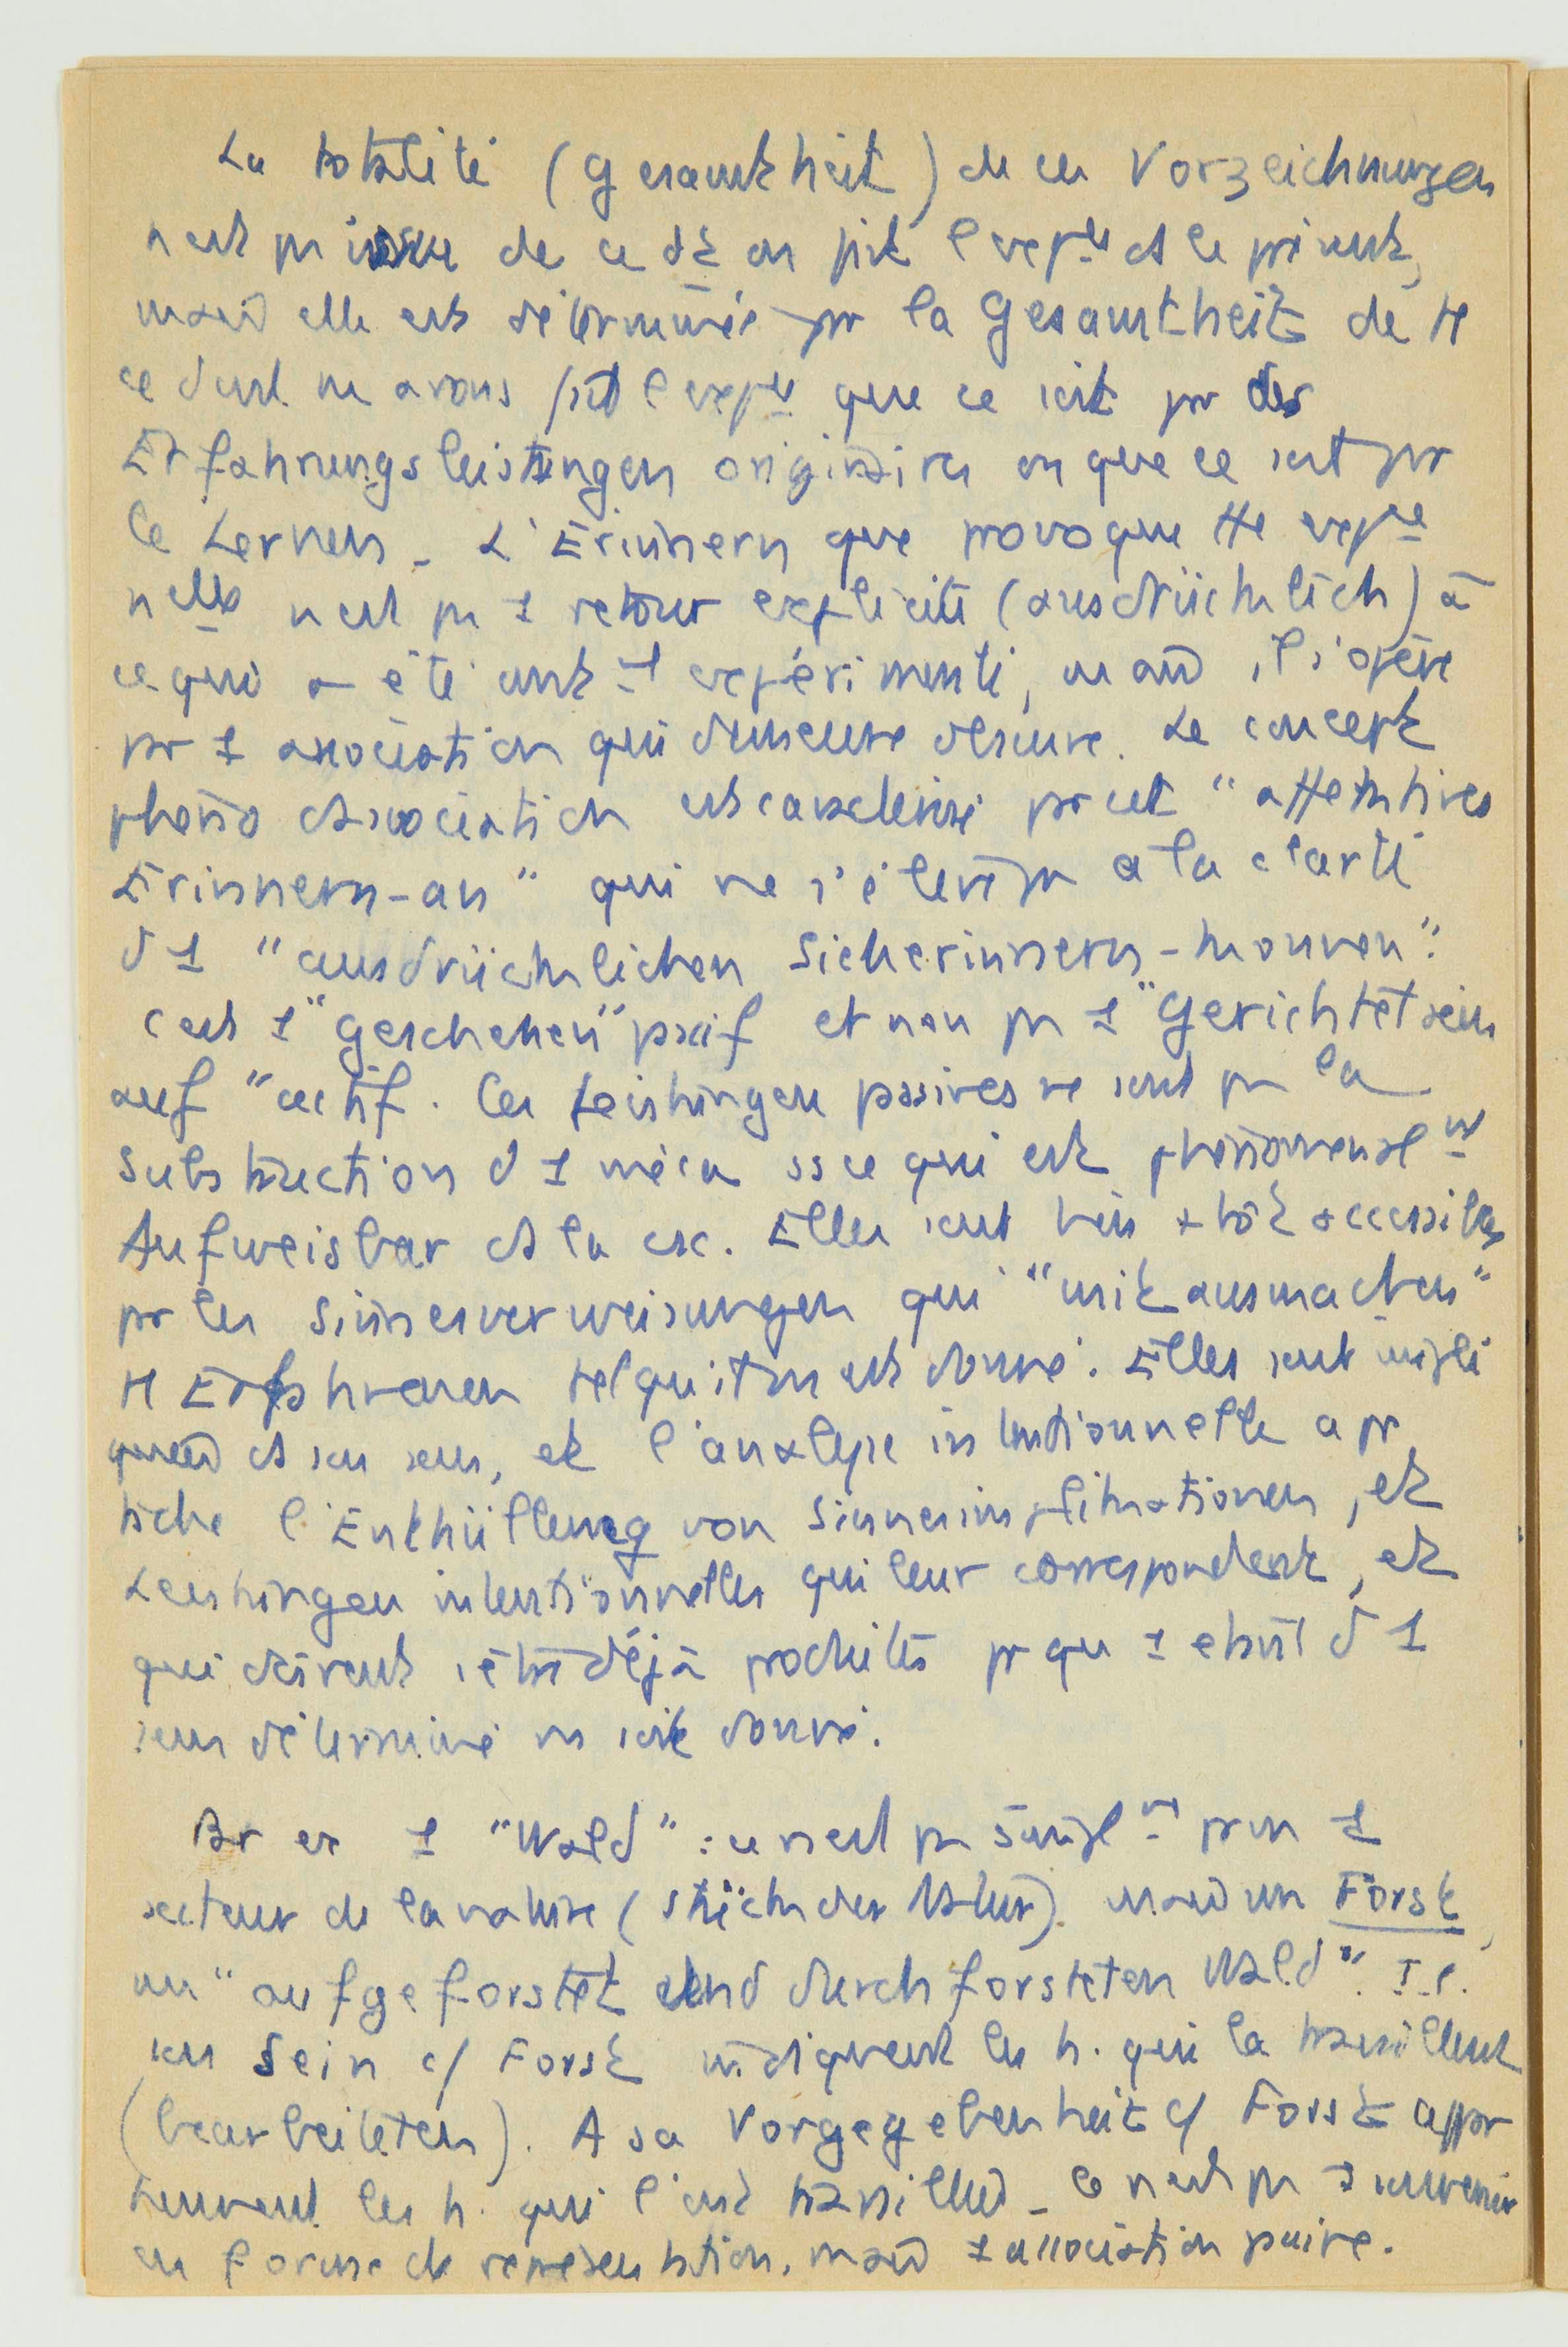 La totalité (Gesamtheit) de ces Vorzeichnungen
n'est pas issue de ce dt on fait l'expce ds le présent,
mais elle est déterminée pr la Gesamtheit de tt
ce dont ns avons fait l'expce que ce soit pr des
Erfahrungsleistungen originaires ou que ce soit pr
le Lernen. L'Erinnern que provoque tte expce
nelle n'est pas 1 retour explicite (ausdrücklich) à
ce qui a été antt expérimenté, mais il s'opère
pr 1 association qui demeure obscure. Le concept
phéno d'association est caractérisé par cet "attentives
Erinnern-an" qui ne s'élève pas à la clarté
d'1 "ausdrücklichen Sicherinnern-können".
C'est 1 "Geschehen" passif et non pas 1 "Gerichtetsein
auf" actif. Ces Leistungen passives ne sont pas la
substruction d'1 méca ss ce qui est phénoménalt
Aufweisbar ds la csc. Elles sont bien + tôt accessibles
pr les Sinnesverweisungen qui "mitausmachen"
tt Erfahrenen tel qu'it ns est donné. Elles sont impli
quées ds son sens, et l'analyse intentionnelle a pr
tâche l'Enthüllung von Sinnesimplikationen, et
Leistungen intentionnelles qui leur correspondent, et
qui doivent s'être déjà produites pr qu'1 objet d'1
sens déterminé ns soit donné.
Par ex 1 "Wald" : ce n'est pas simplt pr ns 1
secteur de la nature (Stück der Natur). mais un Forst,
un "aufgeforstet und durchforsteten Wald". I.e.
son Sein c/ Forst indiquent les h. qui la travaillent
(bearbeiteten). A sa Vorgegebenheit c/ Forst appar
tiennent les h. qui l'ont travaillée. Ce n'est pas 1 souvenir
en forme de représentation, mais 1 association passive.